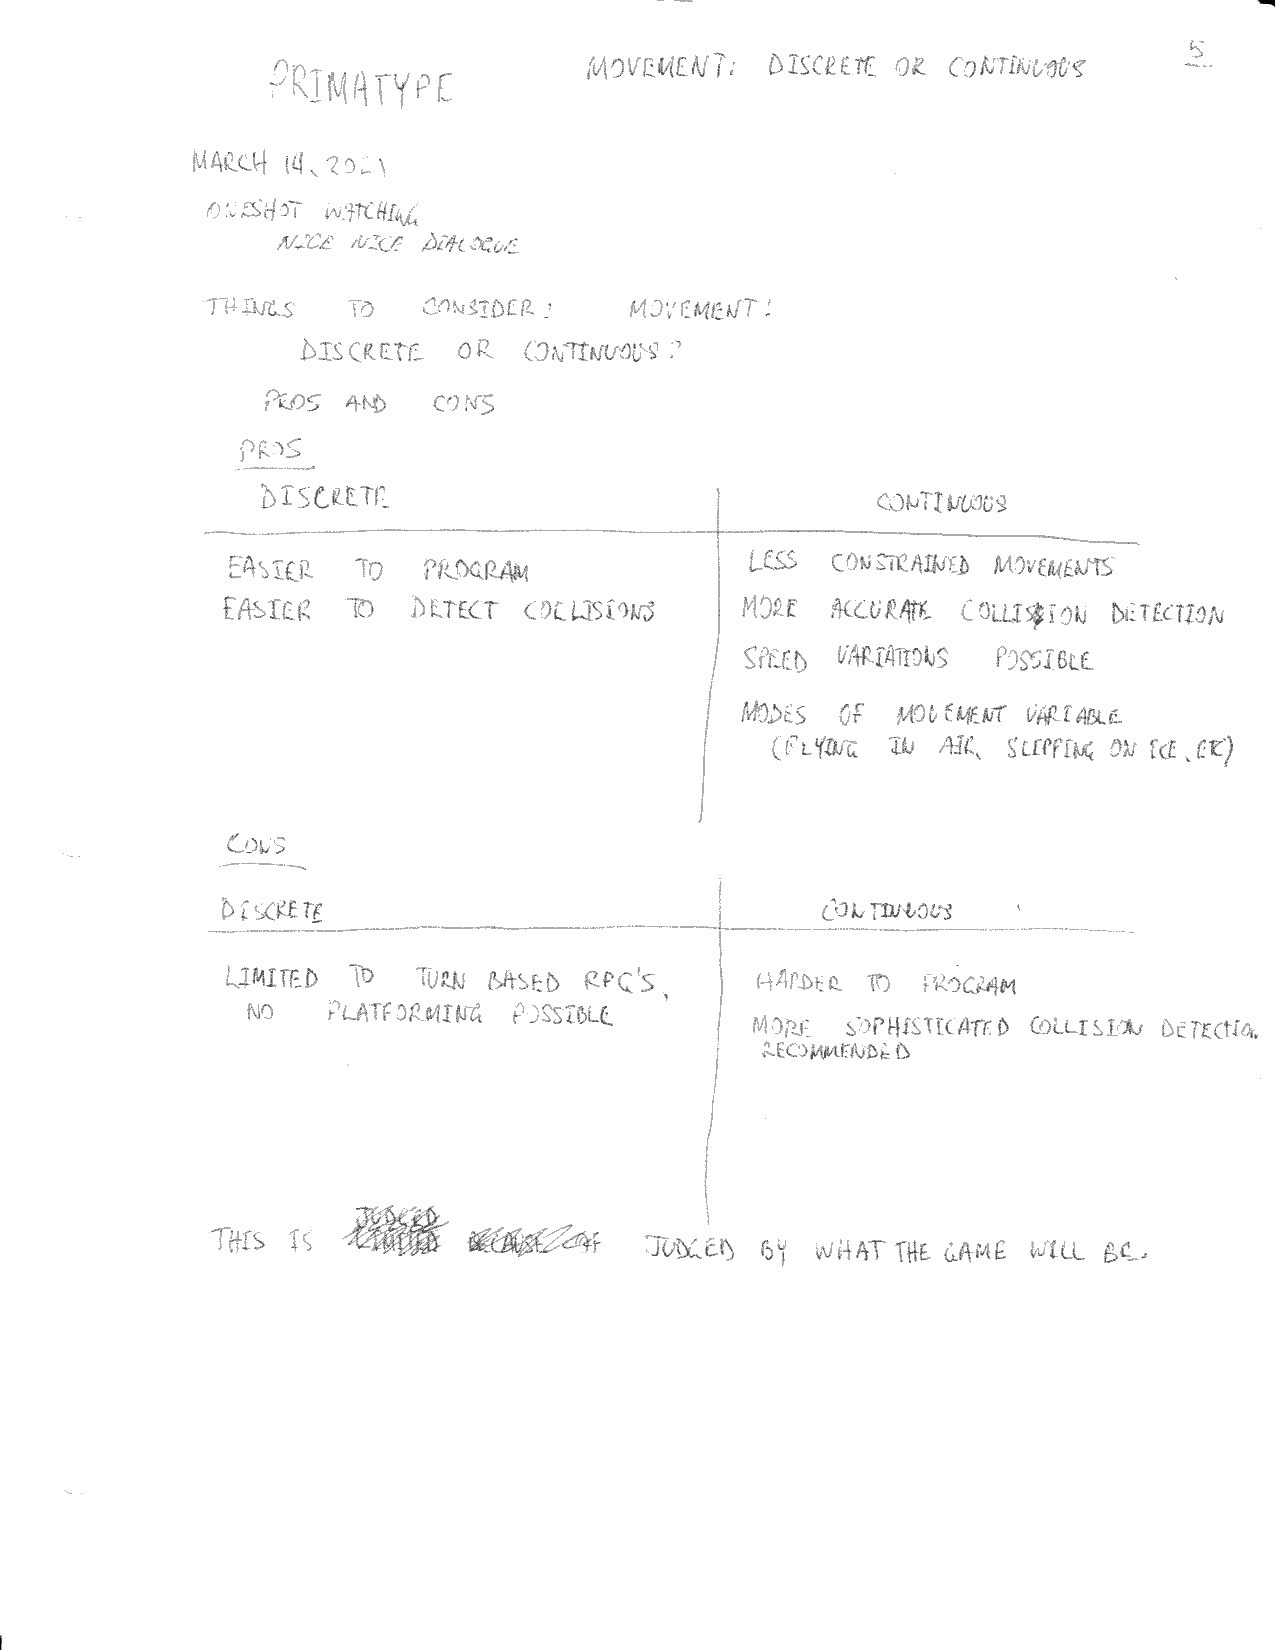 PRIMATYPE
MOVEMENT: DISCRETE OR CONTINUOUS
5
MARCH 14, 2021
ONESHOT WATCHING
NICE NICE DIALOGUE
THINGS TO CONSIDER: MOVEMENT!
DISCRETE OR CONTINUOUS?
PROS AND CONS
PROS
DISCRETE
CONTINUOUS
EASIER TO PROGRAM
EASIER TO DETECT COLLISIONS
LESS CONSTRAINED MOVEMENTS
MORE ACCURATE COLLISION DETECTION
SPEED VARIATIONS POSSIBLE
MODES OF MOVEMENT VARIABLE
(FLYING IN AIR, SLIPPING ON ICE, ETC)
CONS
DISCRETE
CONTINUOUS
LIMITED TO TURN BASED RPG'S,
NO PLATFORMING POSSIBLE
HARDER TO PROGRAM
MORE SOPHISTICATED COLLISION DETECTION
RECOMMENDED
JUDGED
THIS IS LIMITED BECAUSE OF JUDGED BY WHAT THE GAME WILL BE.